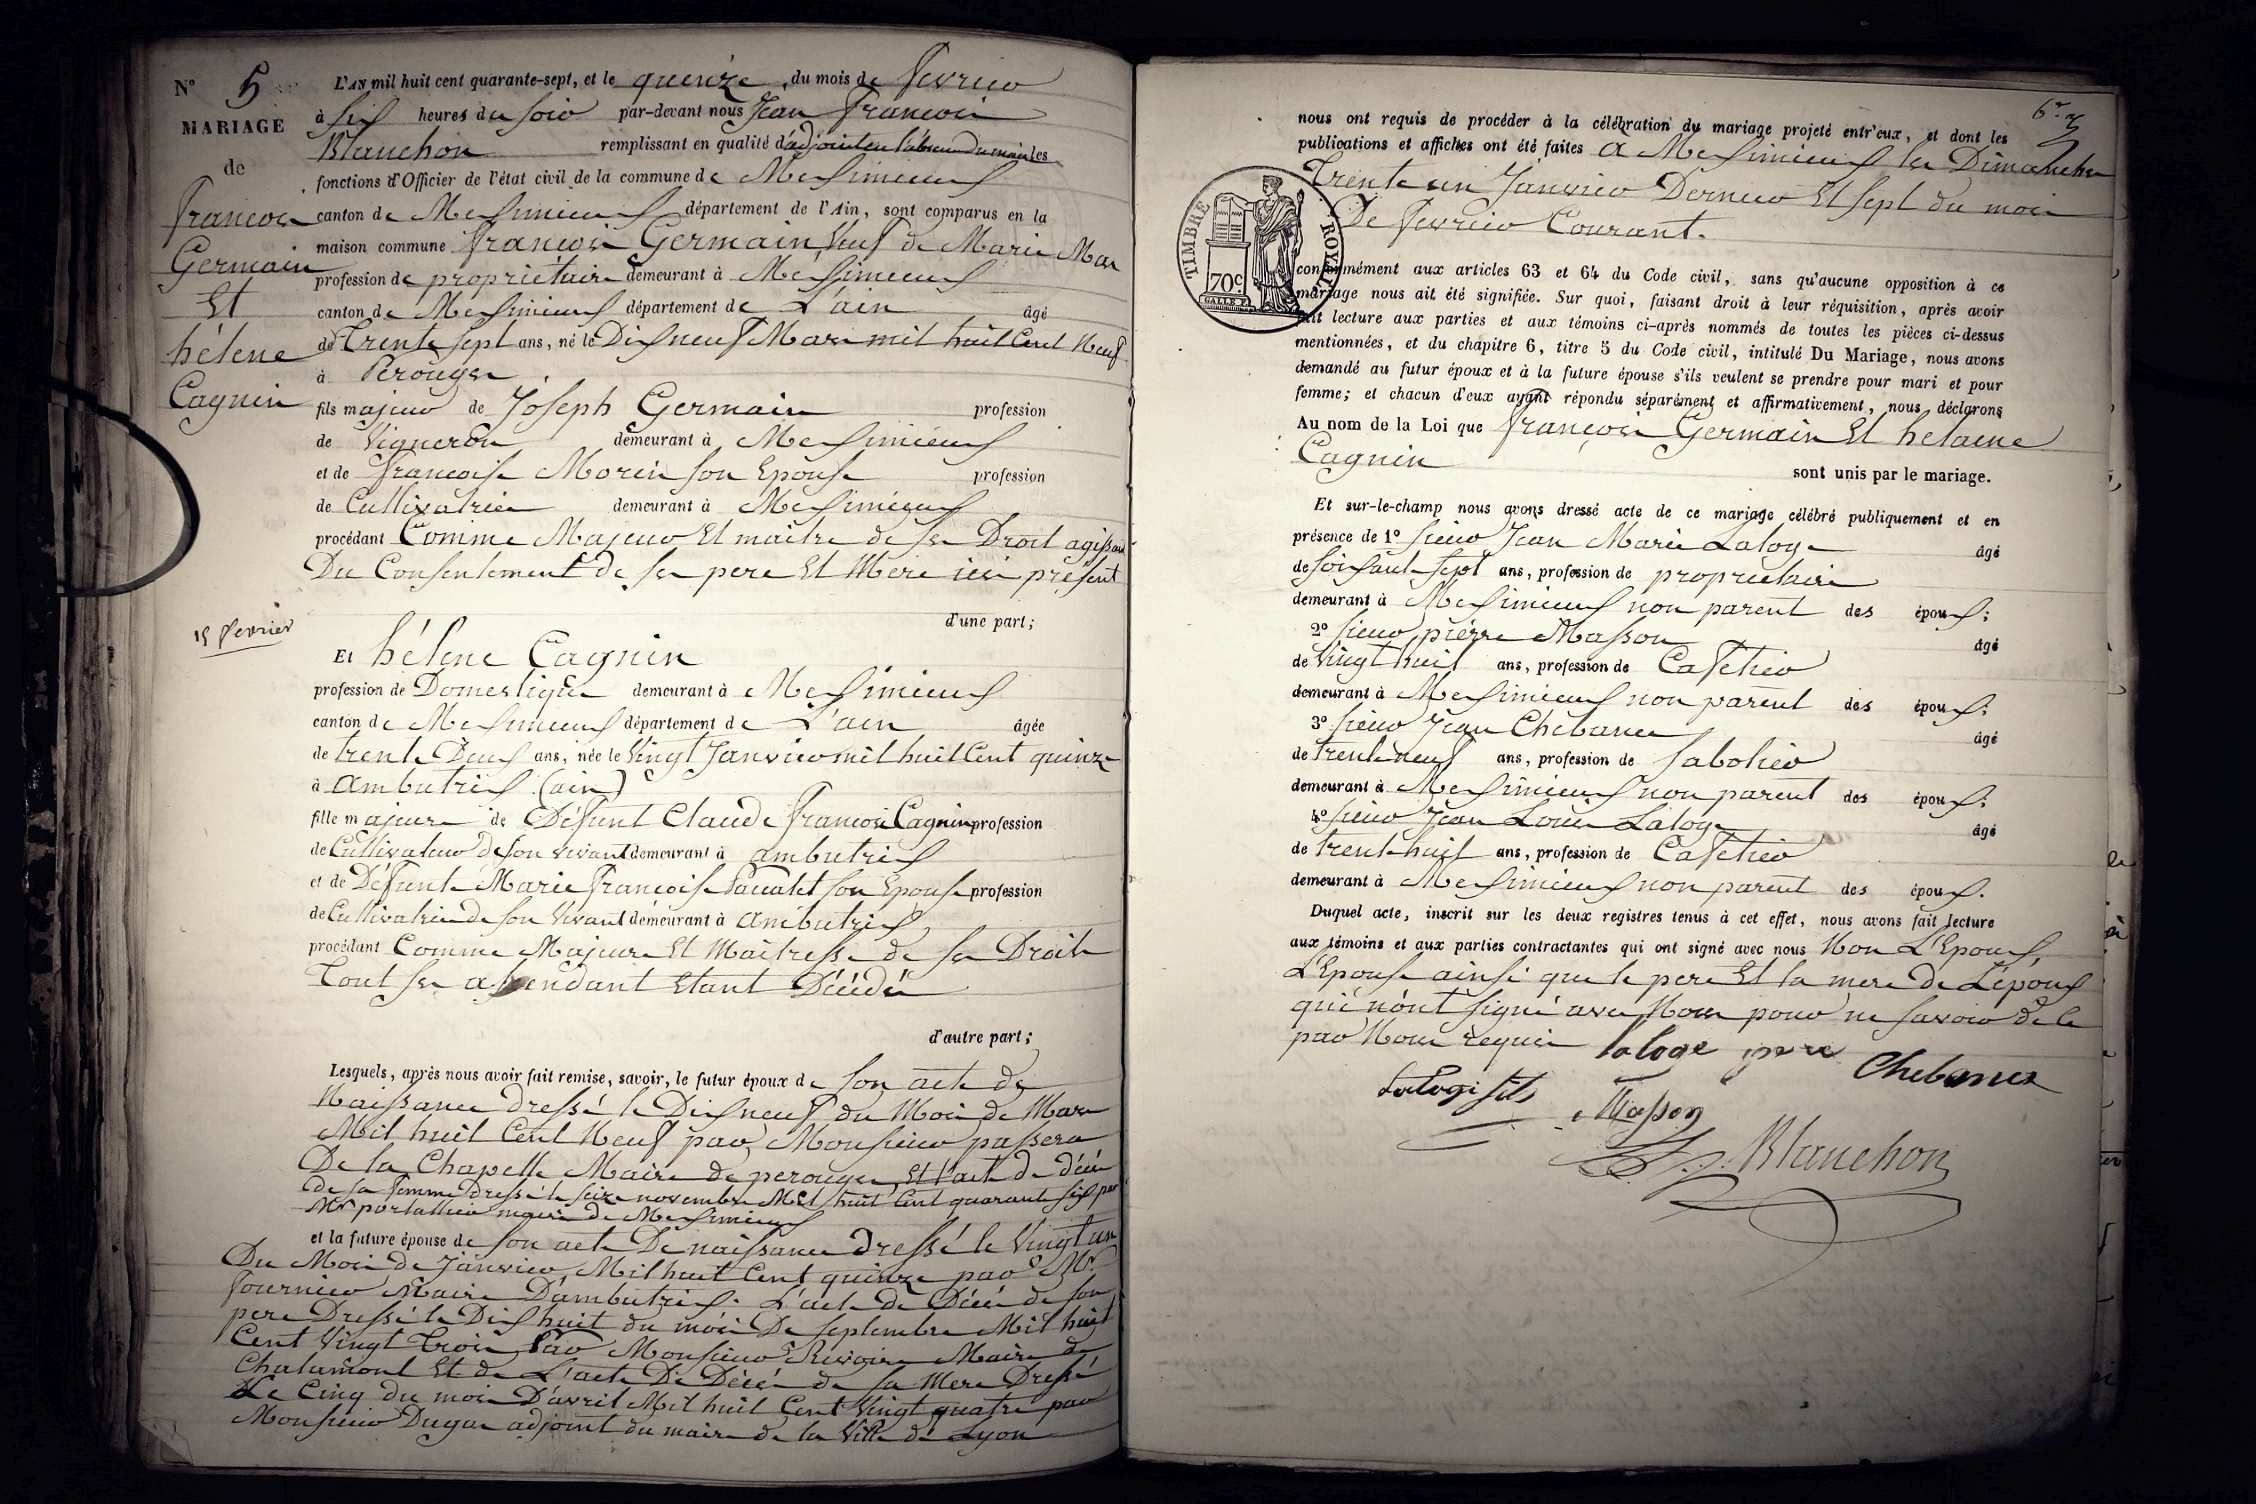 N° 5
MARIAGE
de
François
Germain
Et
hélene
Cagnin
15 fevrier
L'AN mil huit cent quarante-sept, et le quinze du mois de fevrier
à six heures du soir par-devant nous Jean François
Blanchon remplissant en qualité d'adjoint en l'absence du maire les
fonctions d'Officier de l'état civil de la commune de Meximieux
canton de Meximieux département de l'Ain, sont comparus en la
maison commune François Germain Veuf de Marie Mar
profession de propriétaire demeurant à Meximieux
canton de Meximieux département de L'ain âgé
de Trente sept ans, né le Dix neuf Mars mil huit Cent Neuf
à Perouges
fils majeur de Joseph Germain profession
de Vigneron demeurant à Meximieux
et de françoise Morin son Epouse profession
de Cultivatrice demeurant à Meximieux
procédant Comme Majeur Et maitre de ses Droit agissant
Du Consentement de ses pere Et Mere ici présent
d'une part;
Et hélene Cagnin
profession de Domestique demeurant à Meximieux
canton de Meximieux département de L'ain âgée
de trente Deux ans, née le Vingt Janvier mil huit Cent quinze
à ambutrix (ain)
fille majeure de Défunt Claude François Cagnin profession
de Cultivateur de son vivant demeurant à ambutrix
et de Défunte Marie Françoise son Epouse profession
de Cultivatrice de son Vivant demeurant à ambutrix
procédant Comme Majeure Et Maitresse de ses Droits
Tout ses assendant Etant Décédé
d'autre part;
Lesquels, après nous avoir fait remise, savoir, le futur époux de son acte de
Naissance dressé le Dix neuf du Mois de Mars
Mil huit Cent Neuf par Monsieur passera
De la Chapelle Maire de perouges, Et l'acte de décès
de sa femme dressé le seize novembre Mil huit Cent quarante six par
Mr portallier maire de Meximieux
et la future épouse de son acte De naissance dressé le Vingt un
Du Mois de Janvier Mil huit Cent quinze par Mr
fournier Maire D'ambutrix. L'acte de Décès de son
pere Dressé le Dix huit du mois De septembre Mil huit
Cent Vingt trois Par Monsieur Rivoire Maire de
Chalamont Et de L'acte De Décès de sa Mere Dressé
Le Cinq du mois D'avril Mil huit Cent Vingt quatre par
Monsieur Dugas adjoint du maire de la Ville de Lyon
nous ont requis de procéder à la célébration du mariage projeté entr'eux, et dont les
publications et affiches ont été faites a Meximieux les Dimanches
Trente un Janvier Dernier Et sept du mois
De fevrier Courant.
TIMBRE ROYAL
70c
conformément aux articles 63 et 64 du Code civil, sans qu'aucune opposition à ce
mariage nous ait été signifiée. Sur quoi, faisant droit à leur réquisition, après avoir
fait lecture aux parties et aux témoins ci-après nommés de toutes les pièces ci-dessus
mentionnées, et du chapitre 6, titre 5 du Code civil, intitulé Du Mariage, nous avons
demandé au futur époux et à la future épouse s'ils veulent se prendre pour mari et pour
femme; et chacun d'eux ayant répondu séparément et affirmativement, nous déclarons
Au nom de la Loi que François Germain Et helaine
Cagnin sont unis par le mariage.
Et sur-le-champ nous avons dressé acte de ce mariage célébré publiquement et en
présence de 1° sieur Jean Marie Laloge âgé
de soixante sept ans, profession de propriétaire
demeurant à Meximieux non parent des époux;
2° sieur pierre Masson âgé
de Vingt huit ans, profession de Cafetier
demeurant à Meximieux non parent des époux;
3° sieur Jean Chebance âgé
de trente neuf ans, profession de Sabotier
demeurant à Meximieux non parent des époux;
4° sieur Jean Louis Laloge âgé
de trente huit ans, profession de Cafetier
demeurant à Meximieux non parent des époux.
Duquel acte, inscrit sur les deux registres tenus à cet effet, nous avons fait lecture
aux témoins et aux parties contractantes qui ont signé avec nous Non L'Epoux,
L'Epouse ainsi que le pere Et la mere de L'époux
qui n'ont signé avec Nous pour ne savoir de ce
par Nous requis
laloge pere
Chebance
Laloge fils
Masson
Blanchon